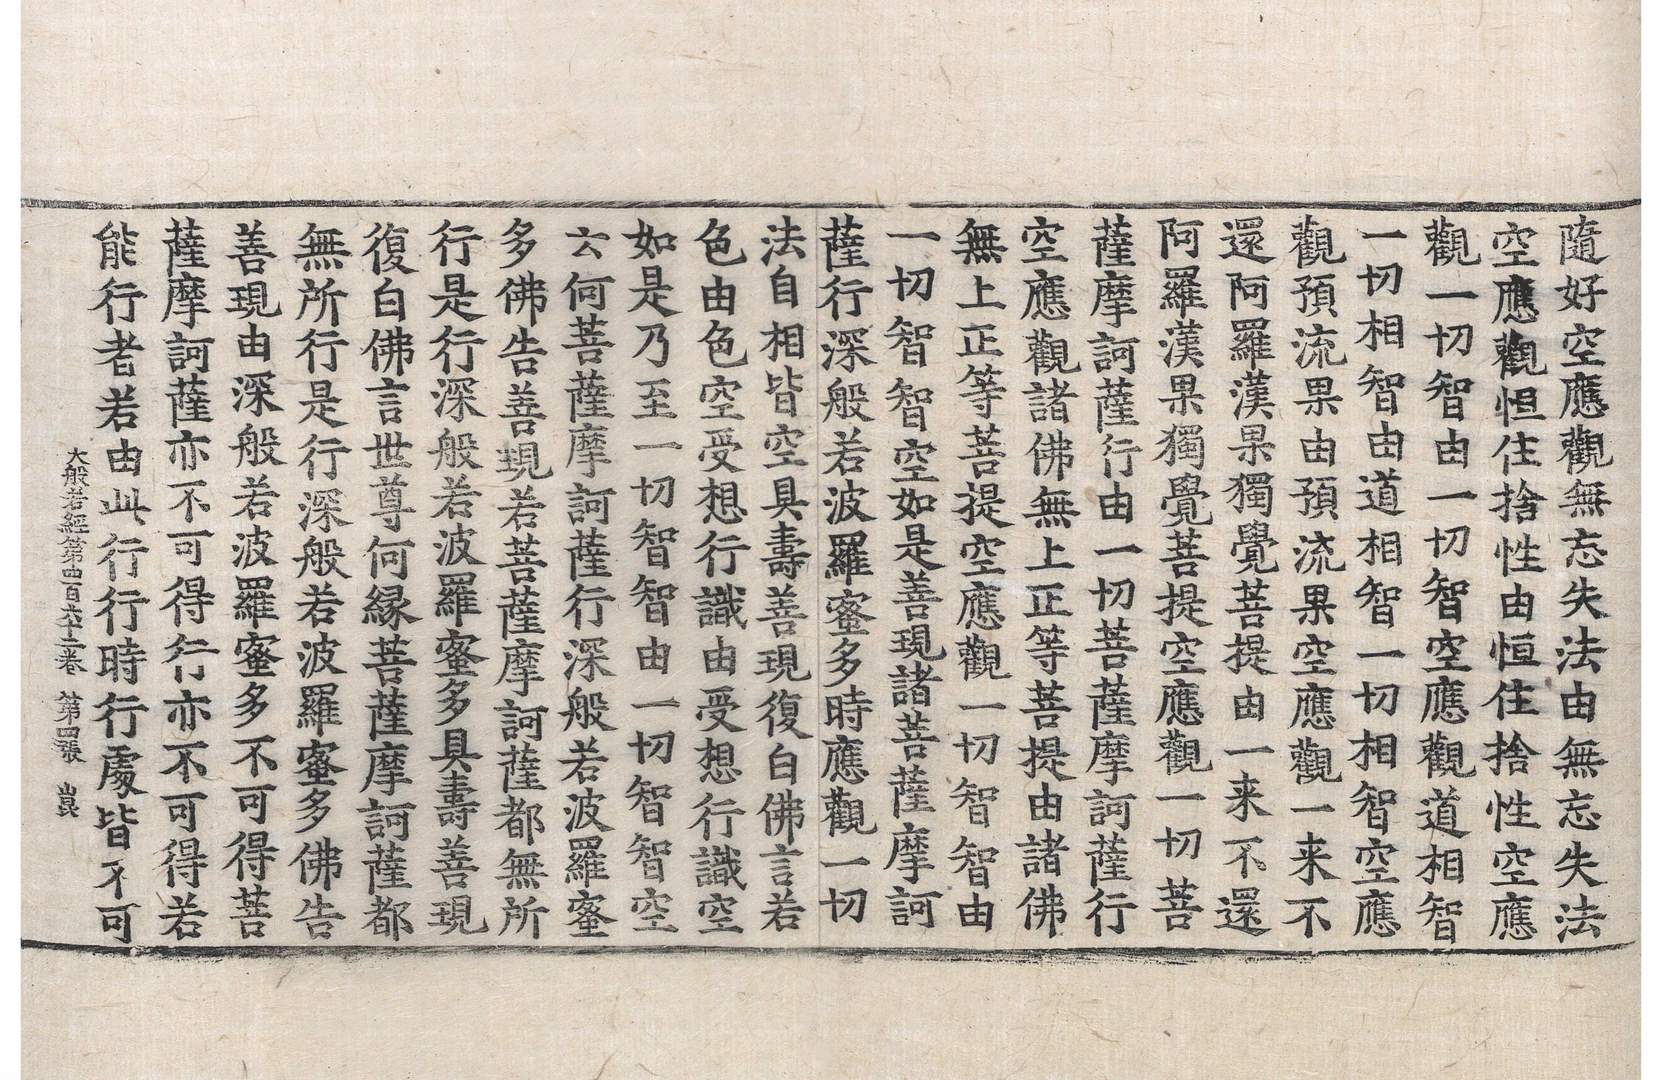 隨好空應觀無忘失法由無忘失法
空應觀恒住捨性由恒住捨性空應
觀一切智由一切智空應觀道相智
一切相智由道相智一切相智空應
觀預流果由預流果空應觀一来不
還阿羅漢果獨覺菩提由一来不還
阿羅漢果獨覺菩提空應觀一切菩
薩摩訶薩行由一切菩薩摩訶薩行
空應觀諸佛無上正等菩提由諸佛
無上正等菩提空應觀一切智智由
一切智智空如是善現諸菩薩摩訶
薩行深般若波羅蜜多時應觀一切
法自相皆空具壽善現復白佛言若
色由色空受想行識由受想行識空
如是乃至一切智智由一切智智空
云何菩薩摩訶薩行深般若波羅蜜
多佛告善現若菩薩摩訶薩都無所
行是行深般若波羅蜜多具壽善現
復白佛言世尊何縁菩薩摩訶薩都
無所行是行深般若波羅蜜多佛告
善現由深般若波羅蜜多不可得菩
薩摩訶薩亦不可得行亦不可得若
能行者若由此行行時行處皆不可
大般若經第四百六十二卷 第四張 崑